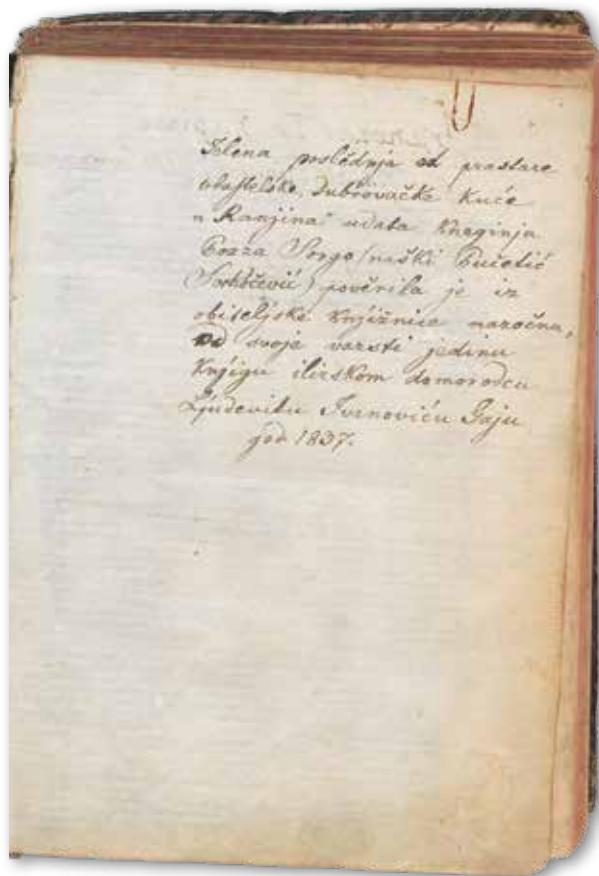 Jelena poslědnja od prastare
vlasteoske, Dubrovačke Kuće
„Ranjina" udata Kneginja
Pozza Sorgo (naški Pučetić
Sorkočević) pověrila je iz
obiteljske knjižnice naročnu,
od svoje varsti jedinu
Knjigu ilirskom domorodcu
Ljudevitu Ivanoviću Gaju
god 1837.